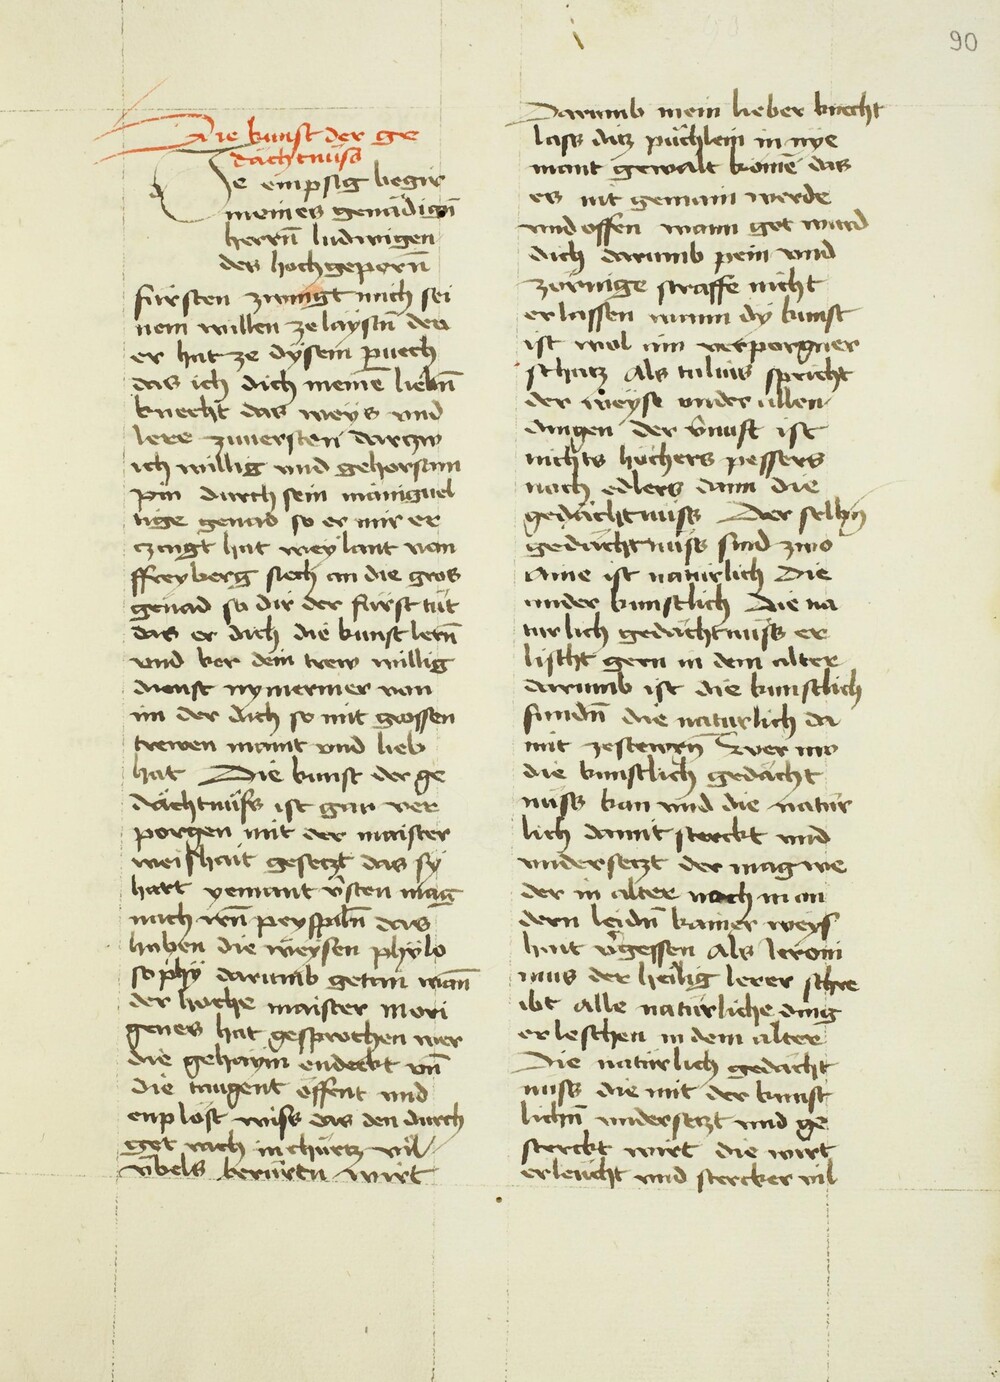 90
Die kunst der ge
dächtnüss
Je empsig begir
meines genädigñ
herrñ ludwigen
des hochgeporñ
fürsten zwingt mich sei
nem willen ze laystñ den
er hat ze dysem puech
das ich dich meinē liebñ
knecht das weys vnd
lere zuuersten dartzw
ich willig vnd gehorsam
pin durch sein maniguel
tige genad so er mir er
czaigt hat weylant von
ffreyberg siech an die gros
genad so dir der fürst tüt
das er dich die kunst lerñ
vnd ker dein trew willig
dienst nymermer von
im der dich so mit grossen
trewen maint vnd lieb
hat Die kunst der ge
dächtnüss ist gar ver
porgen mit der maister
weishait gesetzt das sy
hart yemant v̄sten mag
nach irñ peyspilñ das
haben die weysen phylo
sophy darumb getan wañ
der hoche maister mori
genes hat gesprochen wer
die gehaym endeckt vñ
die taugent öffent vnd
enplöst wiss das den durch
got rach in chürtz vil
v̈bels berüren wirt
Darumb mein lieber knecht
lass ditz püchlein in nye
mant gewalt komē das
es nit gemain werde
vnd offen wann got ward
dich darumb pein vnd
zörnige straffe nicht
erlassen wann dy kunst
ist wol ain verporgner
schatz Als tulius spricht
der weyse vnder allen
dingen der v̄nuft ist
nichts höchers pessers
noch edlers dann die
gedächtnüss Der selbñ
gedächtnüss sind zwo
aine ist natürlich Die
ander kunstlich Die na
türlich gedächtnüss er
lischt gern in dem alter
darumb ist die kunstlich
fundñ die natürlich da
mit zestewrñ Wer nw
die kunstlich gedächt
nüss kan vnd die natür
lich damit sterckt vnd
vndersetzt der mag we
der in alter noch in an
dern leidñ kainer weys
hait v̄gessen Als Jeroni
mus der heilig lerer schre
ibt Alle natürliche ding
erleschen in dem alter
Die natürlich gedächt
nüss die mit der kunst
lichñ vndersetzt vnd ge
sterckt wirt die wirt
erleücht vnd stercker vil